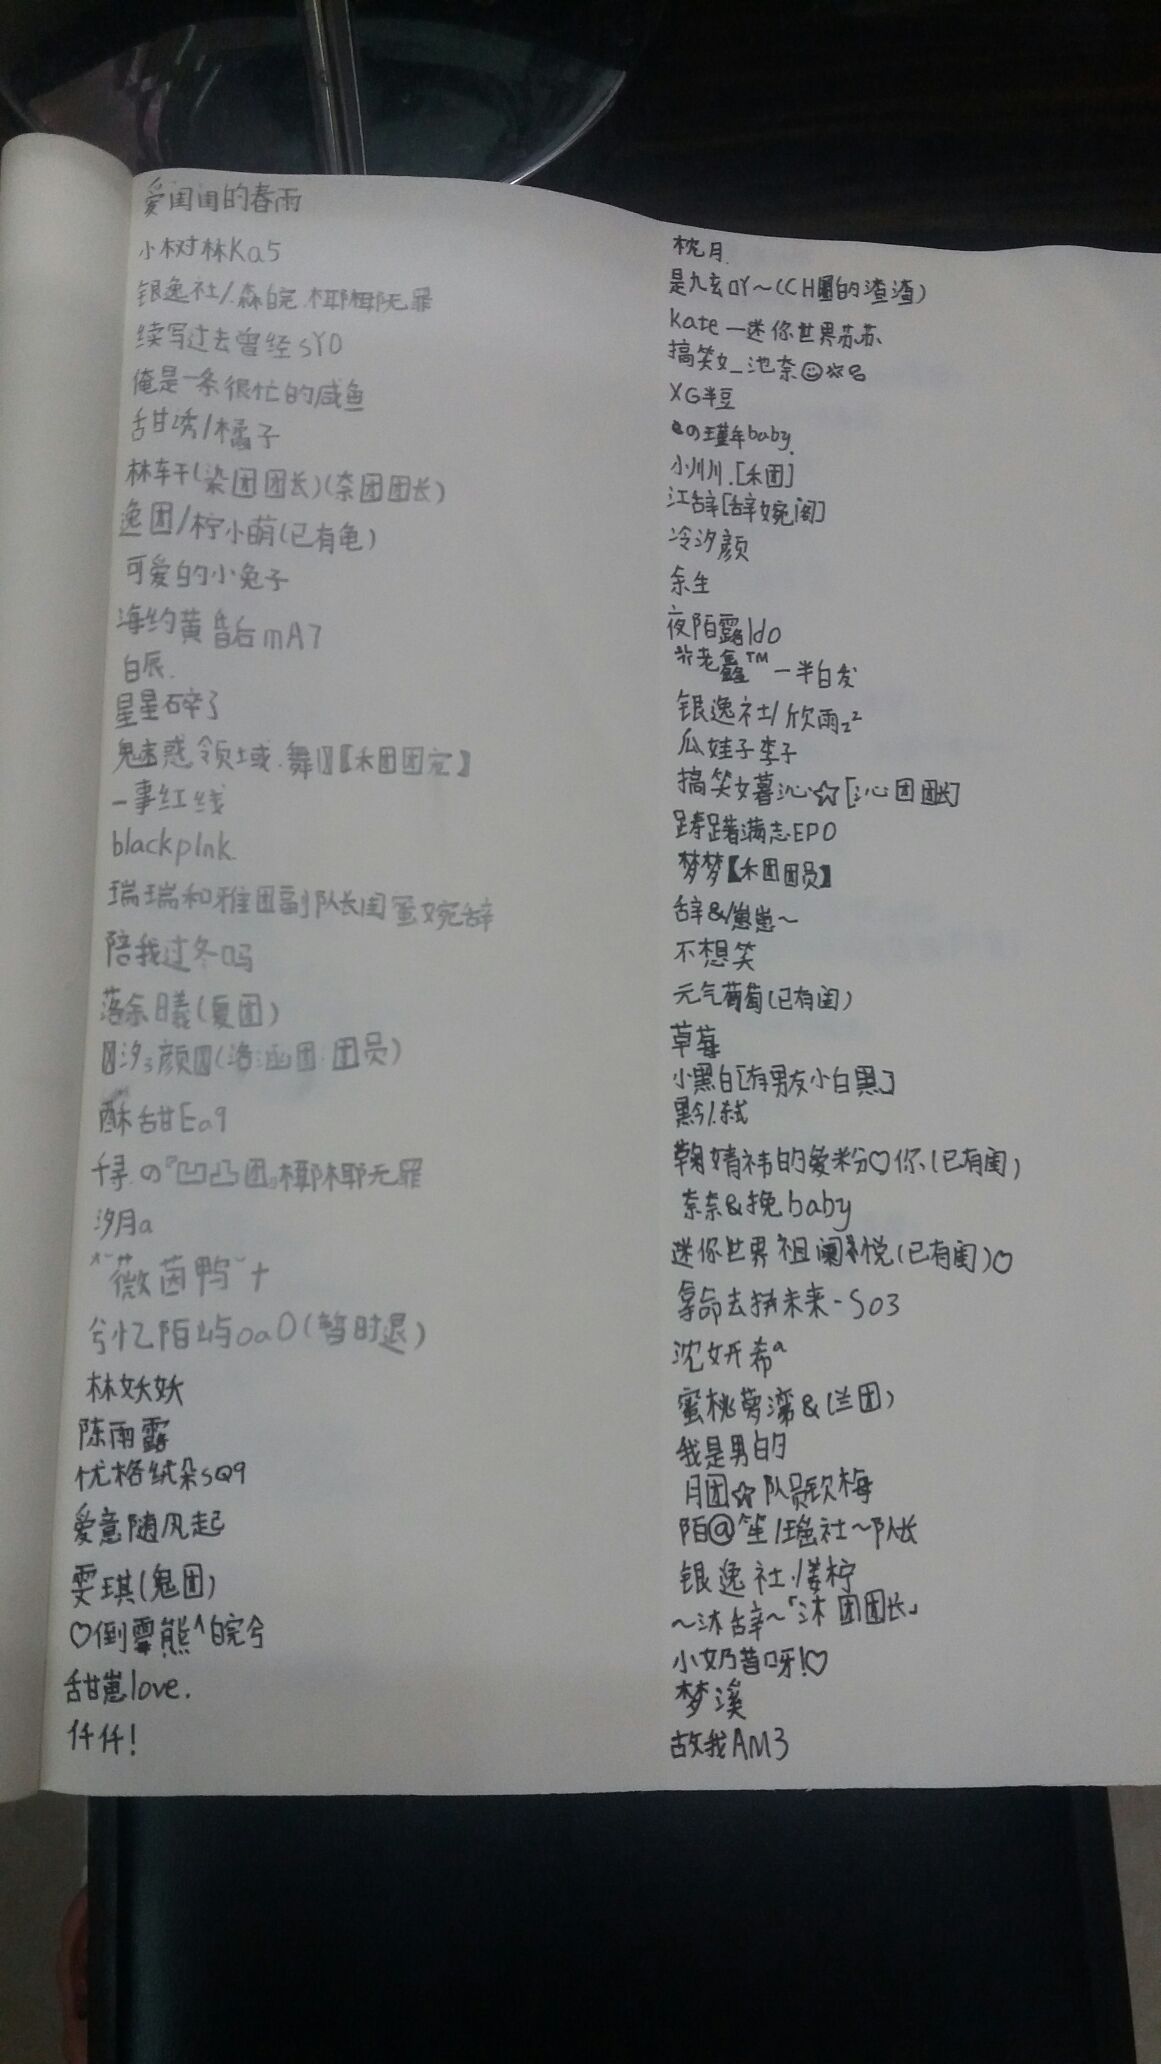 爱闺闺的春雨
小树林Ka5
银逸社/.森皖.椰椰无罪
续写过去曾经sY0
俺是一条很忙的咸鱼
甜诱/橘子
林车干(染团团长)(奈团团长)
逸团/柠小萌(已有龟)
可爱的小兔子
海约黄昏后mA7
白辰.
星星碎了
魅惑领域.舞【禾团团宠】
一事红线
blackplnk.
瑞瑞和雅团副队长闺蜜婉辞
陪我过冬吗
落余曦(夏团)
汐颜(洛涵团:团员)
酥甜Ea9
千寻.の『凹凸团』椰椰无罪
汐月a
薇茵鸭
兮忆陌屿oa0(暂时退)
林妖妖
陈雨露
优格绒朵sQ9
爱意随风起
雯琪(鬼团)
♡倒霉熊^皖兮
甜崽love.
仟仟!
枕月.
是九玄吖~(CH圈的渣渣)
kate一迷你世界苏苏、
搞笑女_池奈☺
XG半豆
の瑾年baby.
小川川.[禾团]
江辞[辞婉阁]
冷汐颜
余生
夜陌露ldo
老鑫™一半白发
银逸社/欣雨z²
瓜娃子李子
搞笑女暮沁☆[沁团团长]
踌躇满志EP0
梦梦【禾团团员】
辞&/崽崽~
不想笑
元气葡萄(已有闺)
草莓
小黑白[有男友小白黑]
黔/.弑
鞠婧祎的爱粉♡你、(已有闺)
柰奈&挽baby
迷你世界祖阑悦(已有闺)♡
拿命去拼未来-S03
沈妍希a
蜜桃萝滦&(兰团)
我是男的
月团☆队员钦梅
陌@笙/瑶社~队长
银逸社·/蒌柠
~沐辞~「沐团团长」
小奶昔呀!♡
梦溪
故我AM3